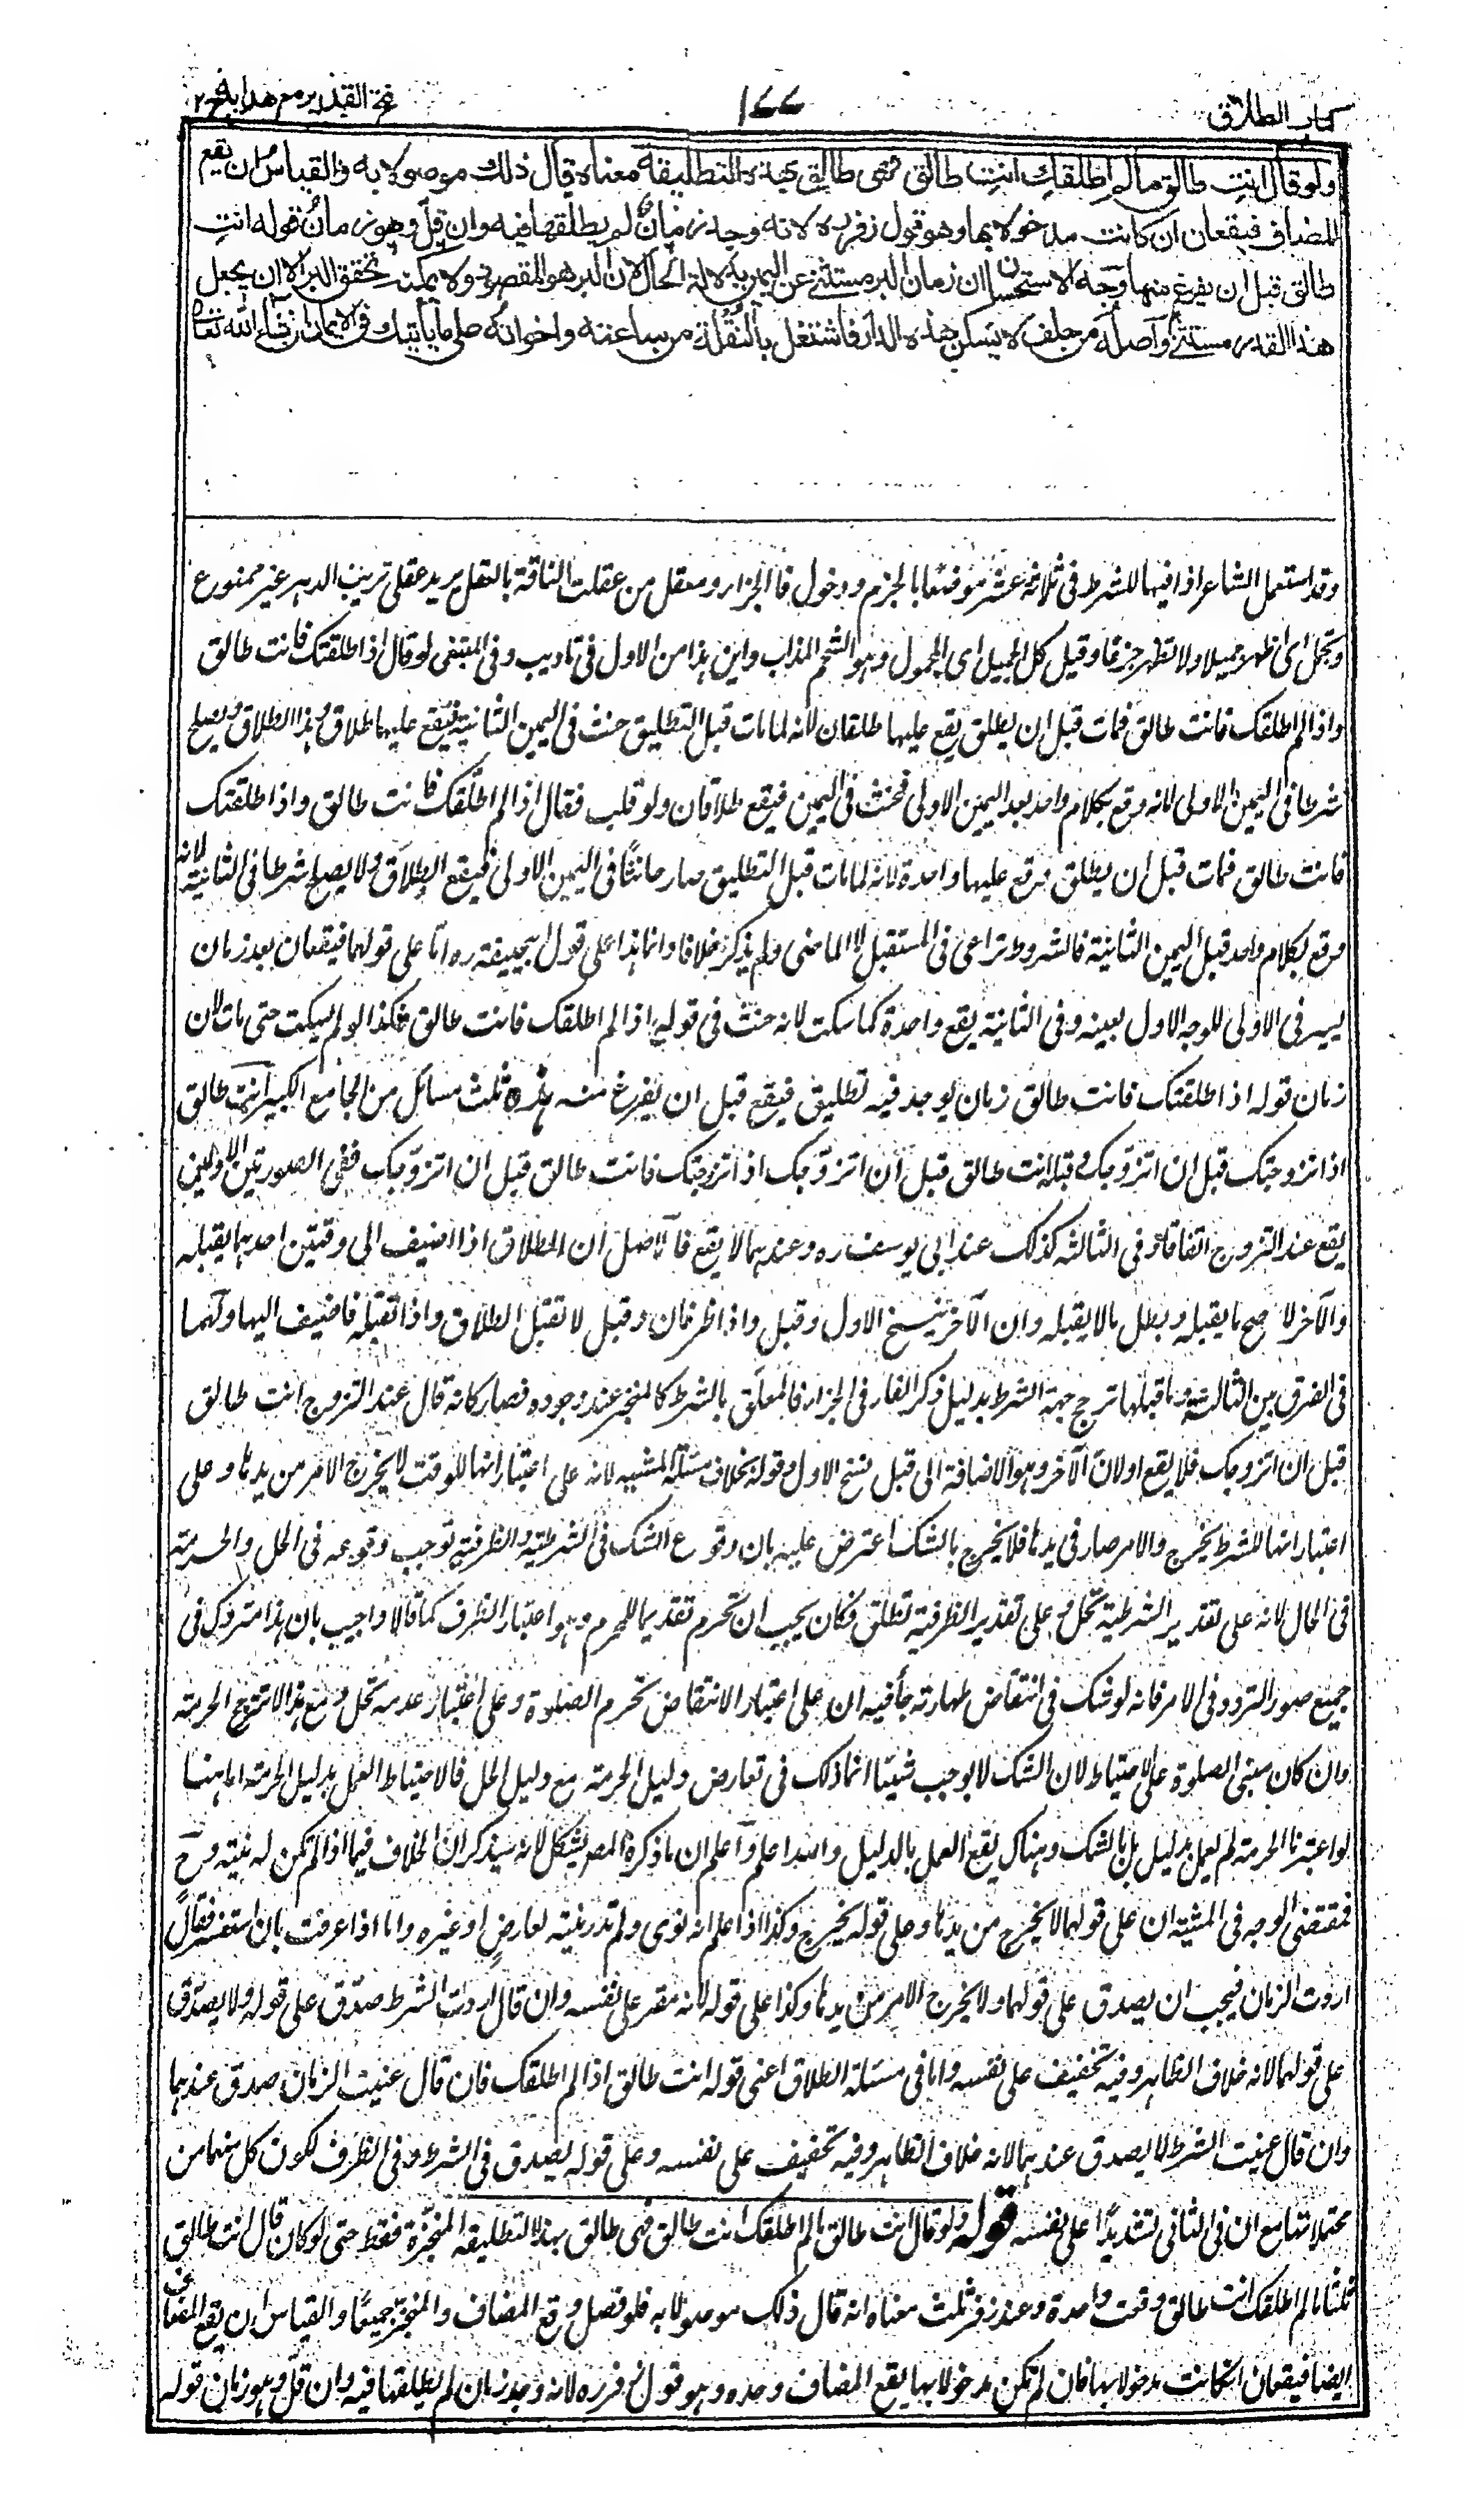 كتاب الطلاق
١٧٧
فتح القدير مع هدايه ج ٢
ولو قال انتِ طالق ما لم اطلقكِ انتِ طالق فهى طالق بهذه التطليقة معناه قال ذلك موصولا به والقياس ان يقع
المضاف فيقعان ان كانت مدخولا بها وهو قول زفر ره لانه وجد زمان لم يطلقها فيه وان قل وهو زمان قوله انتِ
طالق قبل ان يفرغ منها وجه الاستحسان ان زمان البر مستثنى عن اليمين بدلالة الحال لان البر هو المقصود ولا يمكنه تحقق البر الا ان يجعل
هذا القدر مستثنى واصله من حلف لا يسكن هذه الدار فاشتغل بالنقلة من ساعته واخواته على ما يأتيك فى الايمان ان شاء الله تعالى
وقد استعمل الشاعر اذا فيها للشرط فى ثلاثة عشر موضعا بالجزم ودخول فا الجزاء ومعقل من عقلت الناقة بالعقل يريد عقلى تريب الدهر غير ممنوع
وتجمل اى اظهر جميلا ولا تظهر جزعا وقيل كل الجميل اى المجمول وهو الشحم المذاب واين هذا من الاول فى تاديب وفى المبتغى لو قال اذا طلقتك فانت طالق
واذا لم اطلقك فانت طالق فمات قبل ان يطلق يقع عليها طلقان لانه لما مات قبل التطليق حنث فى اليمين الثانية فيقع عليها طلاق وهذا الطلاق يصلح
شرطا فى اليمين الاولى لانه وقع بكلام واحد بعد اليمين الاولى فحنث فى اليمين فيقع طلاقان ولو قلب فقال اذا لم اطلقك فانت طالق واذا طلقتك
فانت طالق فمات قبل ان يطلق وقع عليها واحدة لانه لما مات قبل التطليق صار حانثا فى اليمين الاولى فيقع الطلاق ولا يصلح شرطا فى الثانية لانه
وقع بكلام واحد قبل اليمين الثانية فالشروط تراعى فى المستقبل لا الماضى ولم يذكر خلافا وانما هذا على قول ابى حنيفة ره اما على قولهما فيقعان بعد زمان
يسير فى الاولى للوجه الاول بعينه وفى الثانية يقع واحدة كما سكت لانه حنث فى قوله اذا لم اطلقك فانت طالق هكذا لو لم يسكت حتى مات لان
زمان قوله اذا طلقتك فانت طالق زمان لم يوجد فيه تطليق فيقع قبل ان يفرغ منه هذه ثلث مسائل من الجامع الكبير انت طالق
اذا تزوجتك قبل ان اتزوجك قبله انت طالق قبل ان اتزوجك اذا تزوجتك فانت طالق قبل ان اتزوجك ففى الصورتين الاوليين
يقع عند التزوج اتفاقا وفى الثالثة كذلك عند ابى يوسف ره وعندهما لا يقع فالاصل ان الطلاق اذا اضيف الى وقتين احدهما يقبله
والآخر لا صح ما يقبله وبطل ما لا يقبله وان الآخر ينسخ الاول وقبل واذا ظرفان وقبل لا تقبل الطلاق واذا تقبله فاضيف اليها ولهما
فى الفرق بين الثالثة وما قبلها ترجح جهة الشرط بدليل ذكر الفاء فى الجزاء فالمعلق بالشرط كالمنجز عند وجوده فصار كانه قال عند التزوج انت طالق
قبل ان اتزوجك فلا يقع اولان الآخر وهو الاضافة الى قبل نسخ الاول وقوله بخلاف مسئلة المشية لانه على اعتبار انها للوقت لا يخرج الامر من يدها وعلى
اعتبار انها للشرط يخرج والامر صار فى يدها فلا يخرج بالشك اعترض عليه بان وقوع الشك فى الشرطية والظرفية توجب وقوعه فى الحل والحرمة
فى الحال لانه على تقدير الشرطية تحل وعلى تقدير الظرفية تطلق فكان يجب ان تحرم تقديما للمحرم وهو اعتبار الظرف كما قالا واجيب بان هذا متروك فى
جميع صور التردد فى الامر فانه لو شك فى انتقاض طهارته جاء فيه ان على اعتبار الانتقاض تحرم الصلوة وعلى اعتبار عدمه تحل ومع هذا لا تترجح الحرمة
وان كان مبنى الصلوة على الاحتياط لان الشك لا يوجب شيئا انما ذلك فى تعارض دليل الحرمة مع دليل الحل فالاحتياط العمل بدليل الحرمة اما هنا
لو اعتبرنا الحرمة لم نعمل بدليل بل بالشك وهناك يقع العمل بالدليل والله اعلم واعلم ان ما ذكره المص يشكل لانه سيذكر ان الخلاف فيما اذا لم تكن له نية وح
فمقتضى الوجه فى المشية ان على قولهما لا يخرج من يدها وعلى قوله يخرج وكذا اذا علم انه نوى ولم تدر نيته لعارض او غيره واما اذا عرفت بان استفسر فقال
اردت الزمان فيجب ان يصدق على قولهما ولا يخرج الامر من يدها وكذا على قوله لانه مقر على نفسه وان قال اردت الشرط صدق على قوله ولا يصدق
على قولهما لانه خلاف الظاهر وفيه تخفيف على نفسه واما فى مسئلة الطلاق اعنى قوله انت طالق اذا لم اطلقك فان قال عنيت الزمان صدق عندهما
وان قال عنيت الشرط لا يصدق عندهما لانه خلاف الظاهر وفيه تخفيف على نفسه وعلى قوله يصدق فى الشرط وفى الظرف لكون كل منهما من
محتملاتها مع ان فى الثانى تشديدا على نفسه قوله ولو قال انت طالق ما لم اطلقك انت طالق فهى طالق بهذه التطليقة المنجزة فقط حتى لو كان قال انت طالق
ثلثا ما لم اطلقك انت طالق وقعت واحدة وعند زفر ثلث معناه انه قال ذلك موصولا به فلو فصل وقع المضاف والمنجز جميعا والقياس ان يقع المضاف
ايضا فيقعان ان كانت مدخولا بها فان لم تكن مدخولا بها يقع المضاف وحده وهو قول زفر ره لانه وجد زمان لم يطلقها فيه وان قل وهو زمان قوله